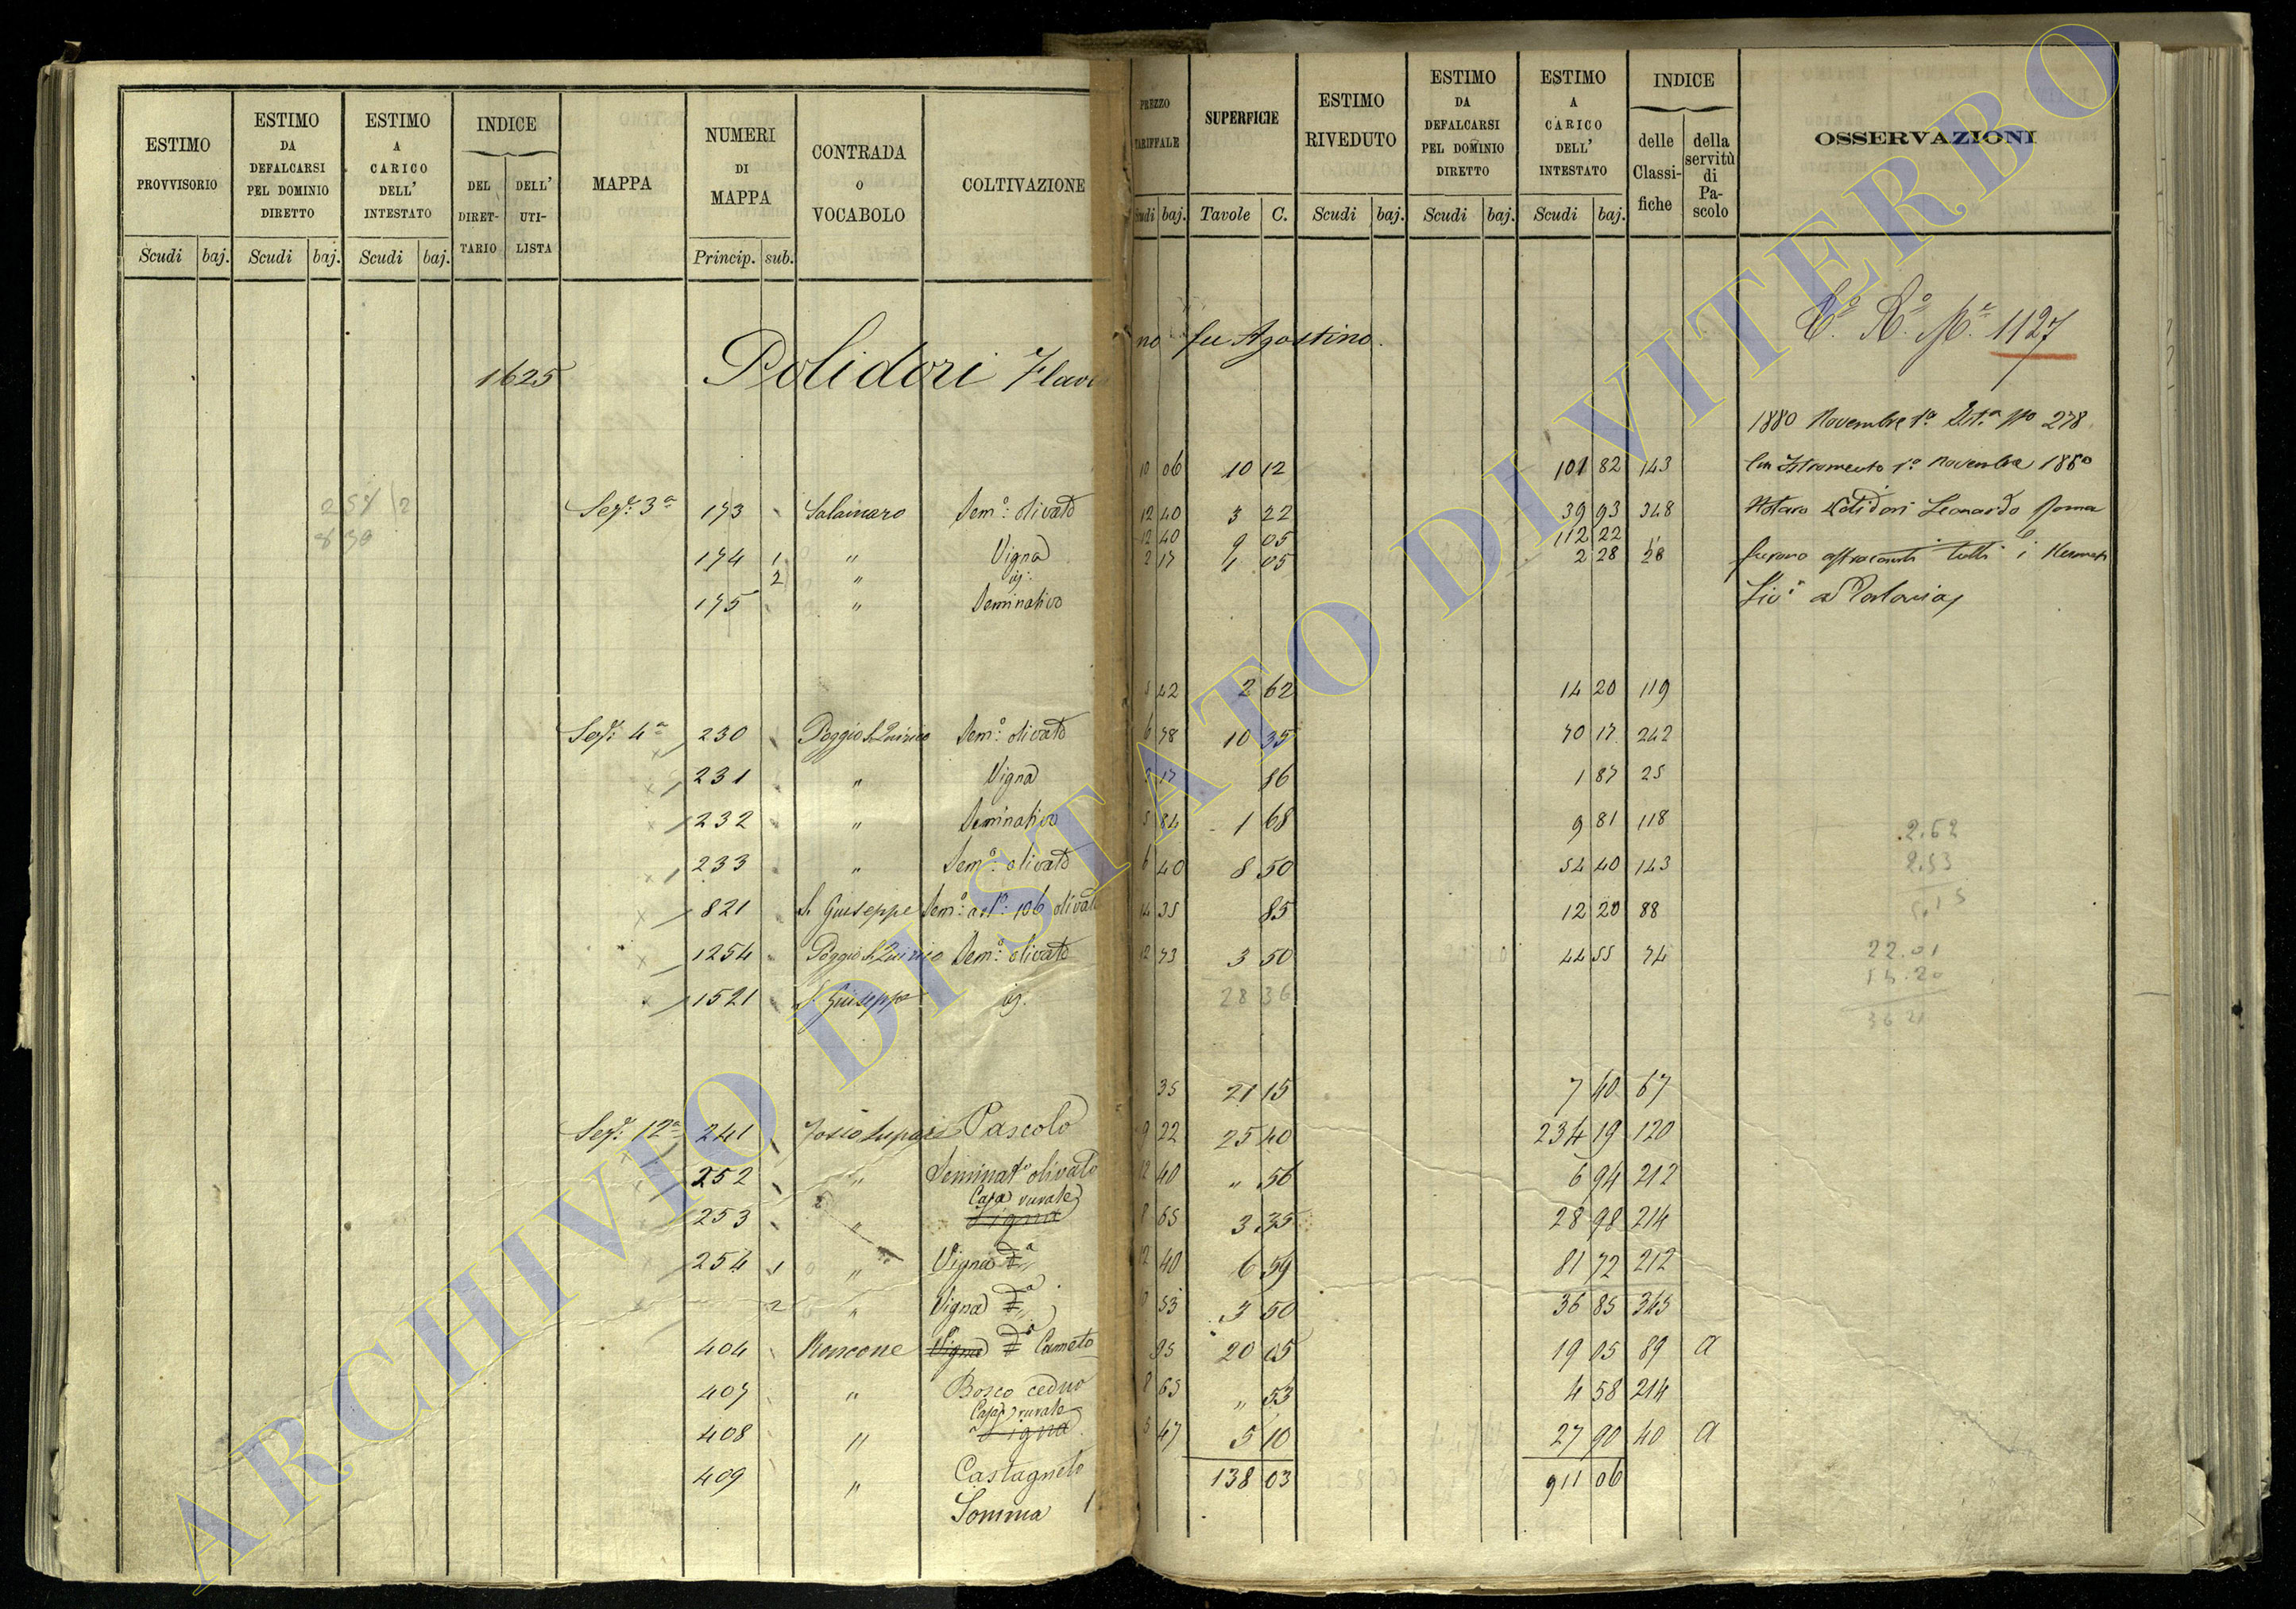 ESTIMO PROVVISORIO
ESTIMO DA DEFALCARSI PEL DOMINIO DIRETTO
ESTIMO A CARICO DELL' INTESTATO
INDICE
DEL DIRETTARIO
DELL' UTILISTA
MAPPA
NUMERI DI MAPPA
CONTRADA O VOCABOLO
COLTIVAZIONE
PREZZO TARIFFALE
SUPERFICIE
ESTIMO RIVEDUTO
ESTIMO DA DEFALCARSI PEL DOMINIO DIRETTO
ESTIMO A CARICO DELL' INTESTATO
INDICE
delle Classifiche
della servitù di Pascolo
OSSERVAZIONI
Scudi baj. Scudi baj. Scudi baj. Princip. sub.
Scudi baj. Tavole C. Scudi baj. Scudi baj. Scudi baj.
C.º R.º 1127
1625 Polidori Flaviano fu Agostino.
1880 Novembre 1º N° 278
Istromento 1º Novembre 1880
Notaro Polidori Leonardo Roma
furono tutti i
Sez. 3ª 173 Salamaro Sem.º olivato 10 06 10 12 101 82 143
174 1 " Vigna 12 40 3 22 39 93 348
2 " id. 12 40 9 05 112 22 "
175 " Seminativo 2 17 1 05 2 28 28
Sez. 4ª 230 Poggio S. Quirico Sem.º olivato 5 42 2 62 14 20 119
231 " Vigna 6 78 10 35 70 17 242
232 " Seminativo 2 17 86 1 87 25
233 " Sem.º olivato 5 84 1 68 9 81 118
821 S. Giuseppe Sem.º 106 olivato 6 40 8 50 54 40 143
1254 Poggio S. Quirico Sem.º olivato 14 35 85 12 20 88
1521 S. Giuseppe id. 12 73 3 50 44 55 74
28 36
2.62
2.53
5.15
22.01
14.20
36 21
Sez. 12ª 241 Fosso Lupari Pascolo 35 21 15 7 40 67
252 " Seminat.º olivato 9 22 25 40 234 19 120
253 " Casa rurale Vigna 12 40 " 56 6 94 212
254 1 " Vigna 8 65 3 35 28 98 214
2 " Vigna 12 40 6 59 81 72 212
404 Roncone Vigna Canneto 10 53 3 50 36 85 345
407 " Bosco ceduo 95 20 05 19 05 89 a
408 " Casa rurale Vigna 8 65 " 53 4 58 214
409 " Castagneto 5 47 5 10 27 90 40 a
Somma 138 03 911 06
ARCHIVIO DI STATO DI VITERBO